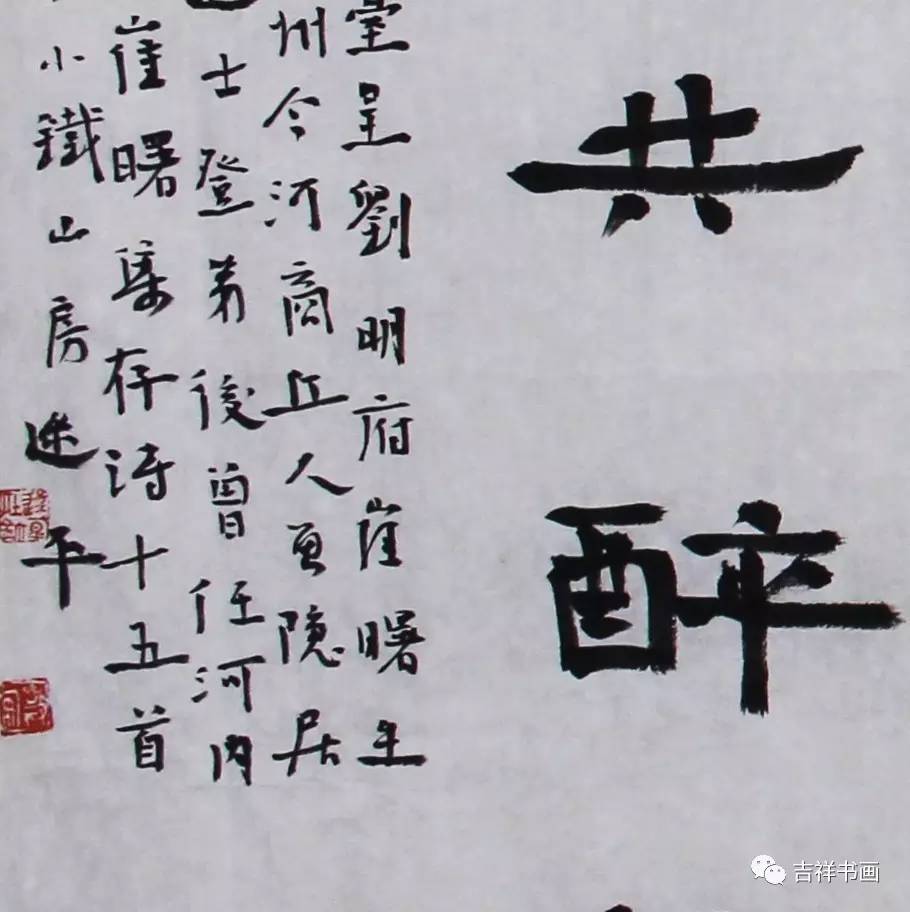 共醉
堂呈劉明府崔曙生
州今河商丘人曾隱居
士登第後曾任河內
崔曙集存詩十五首
小鐵山房
平
吉祥书画